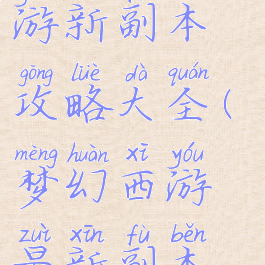 游新副本
gōng lüè dà quán
攻略大全(
mèng huàn xī yóu
梦幻西游
zuì xīn fù běn
最新副本